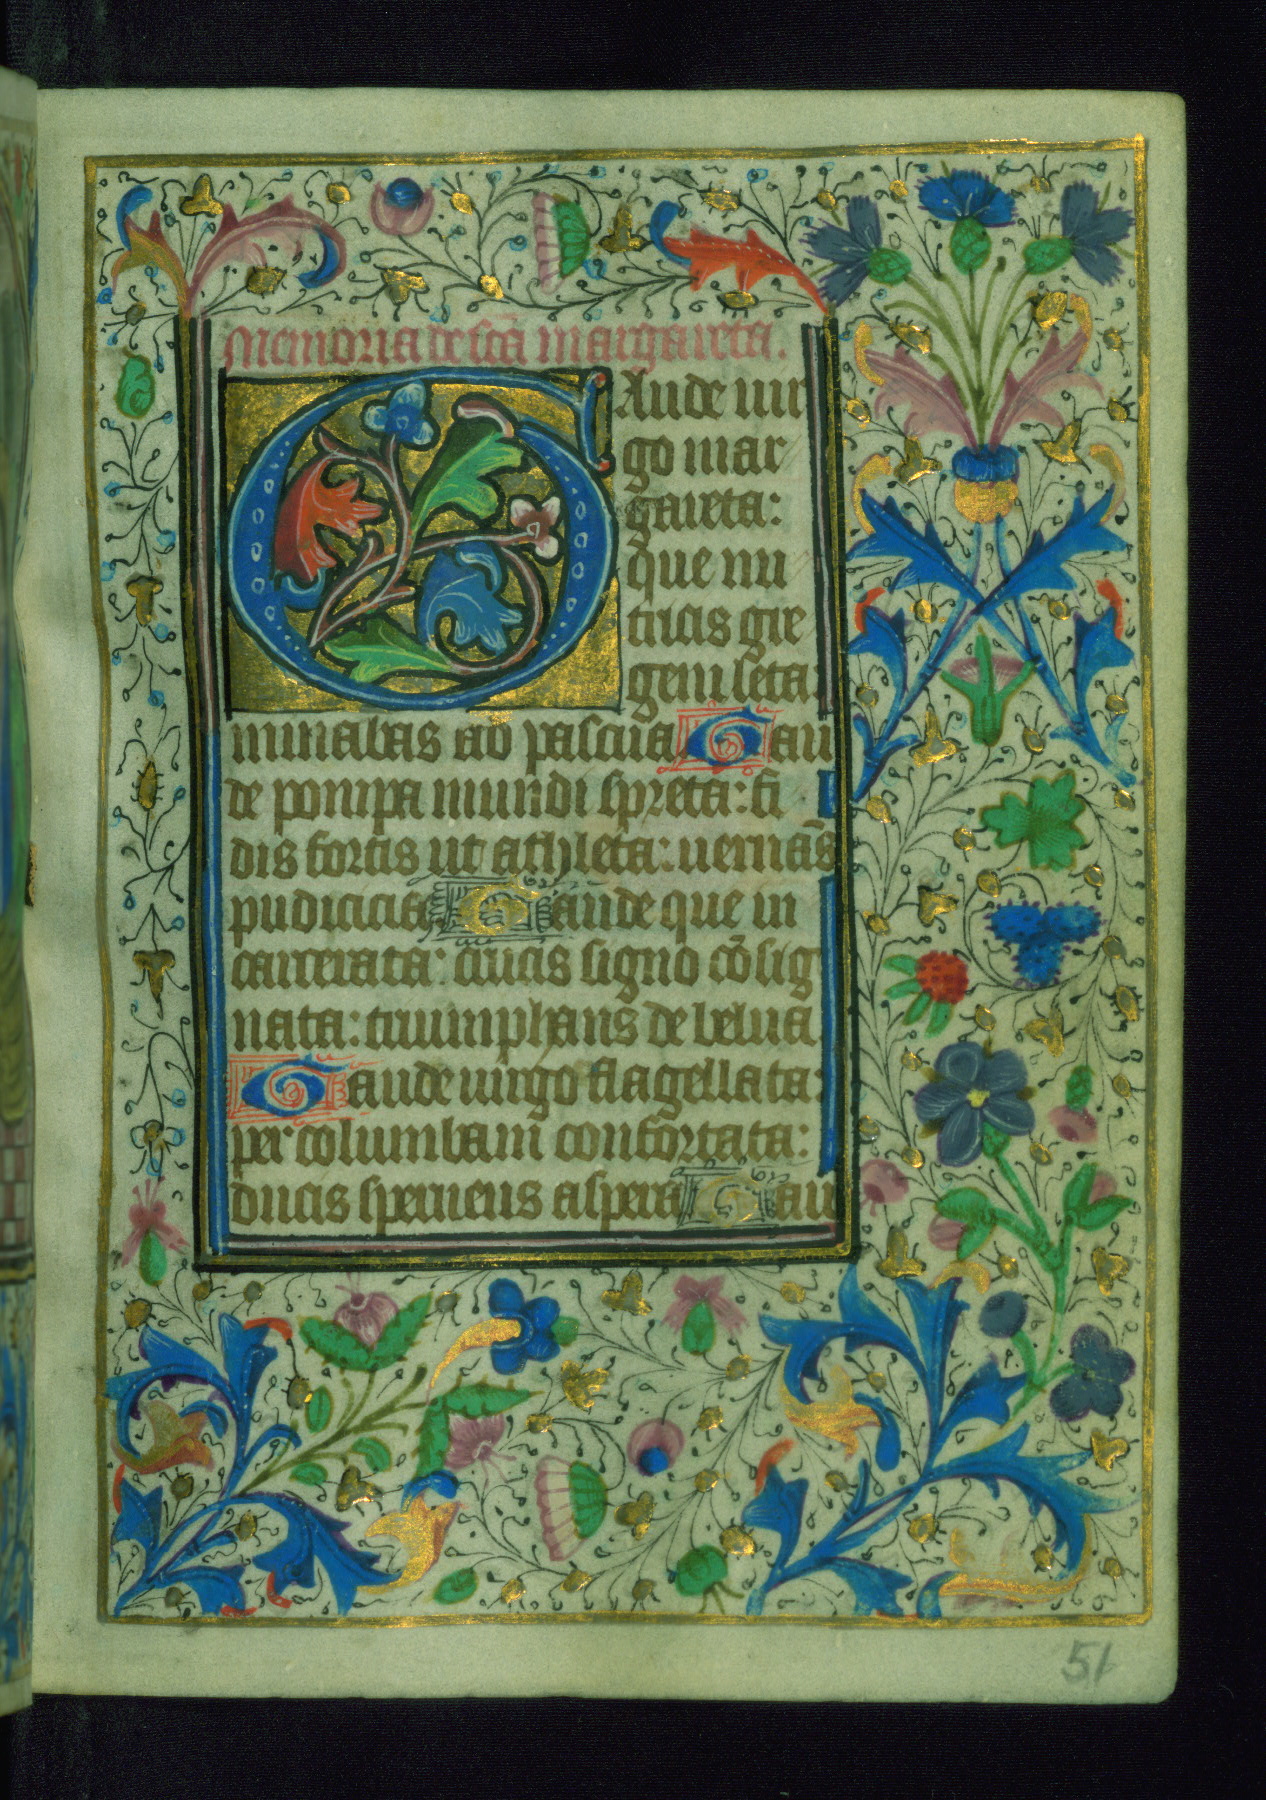 Memoria de sc̄a margareta.
GAude uir
go mar
gareta:
que nu
tricis gre
gem seta
minabas ad pascua Gau
de pompa mundi spreta: fi
dis fortis ut athleta: uernās
pudicicia Gaude que in
carcerata: crucis signo cōsig
nata: triumphans de belua
Gaude uirgo flagellata:
per columbam confortata:
ducis spernens aspera Gau
51